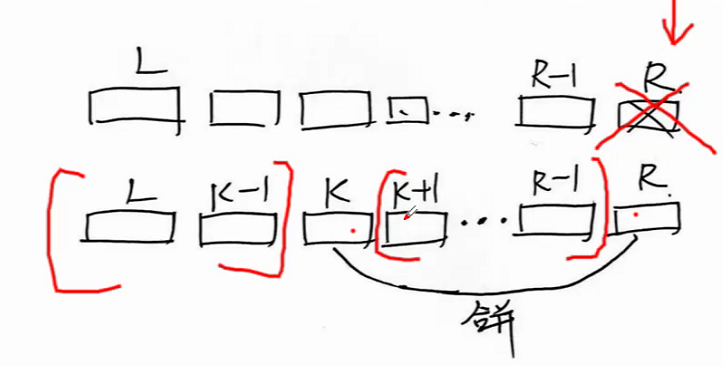 L R-1 R
...
L K-1 K K+1 R-1 R
...
合并